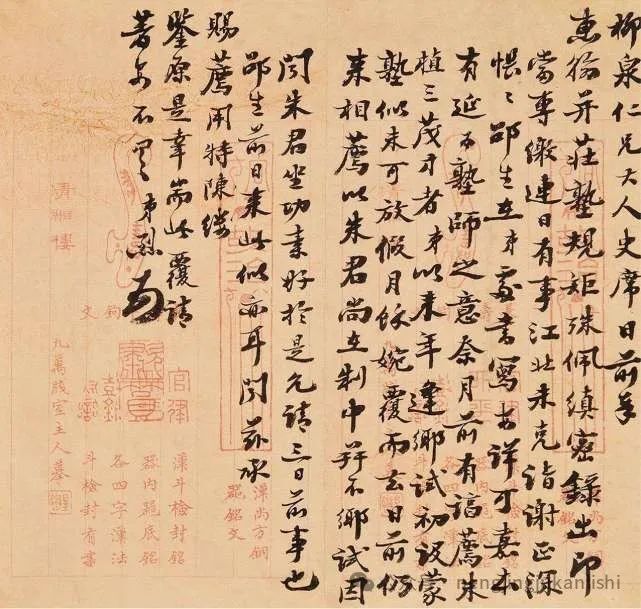 柳泉仁兄大人史席日前奉
惠翰并莊塾規矩殊佩縝密錄出印
當專繳連日有事江北未克詣謝正深
悵〻邵生在弟處書寫安詳可嘉本
有延塾師之意奈月前有薦朱
植三茂才者弟以來年逢鄉試初設蒙
塾似未可放假月餘婉覆而去日前仍
來相薦以朱君尚在制中并不鄉試因
聞朱君坐功素好於是允請三日前事也
邵生前日來此似亦耳聞茲承
賜薦用特陳縷
鑒原是幸耑此覆請
著安不 弟
漢尚方銅
器銘文
官律
漢斗檢封銘
器內底銘
各四字漢法
斗檢封有案
九萬牋室主人摹
青緗樓